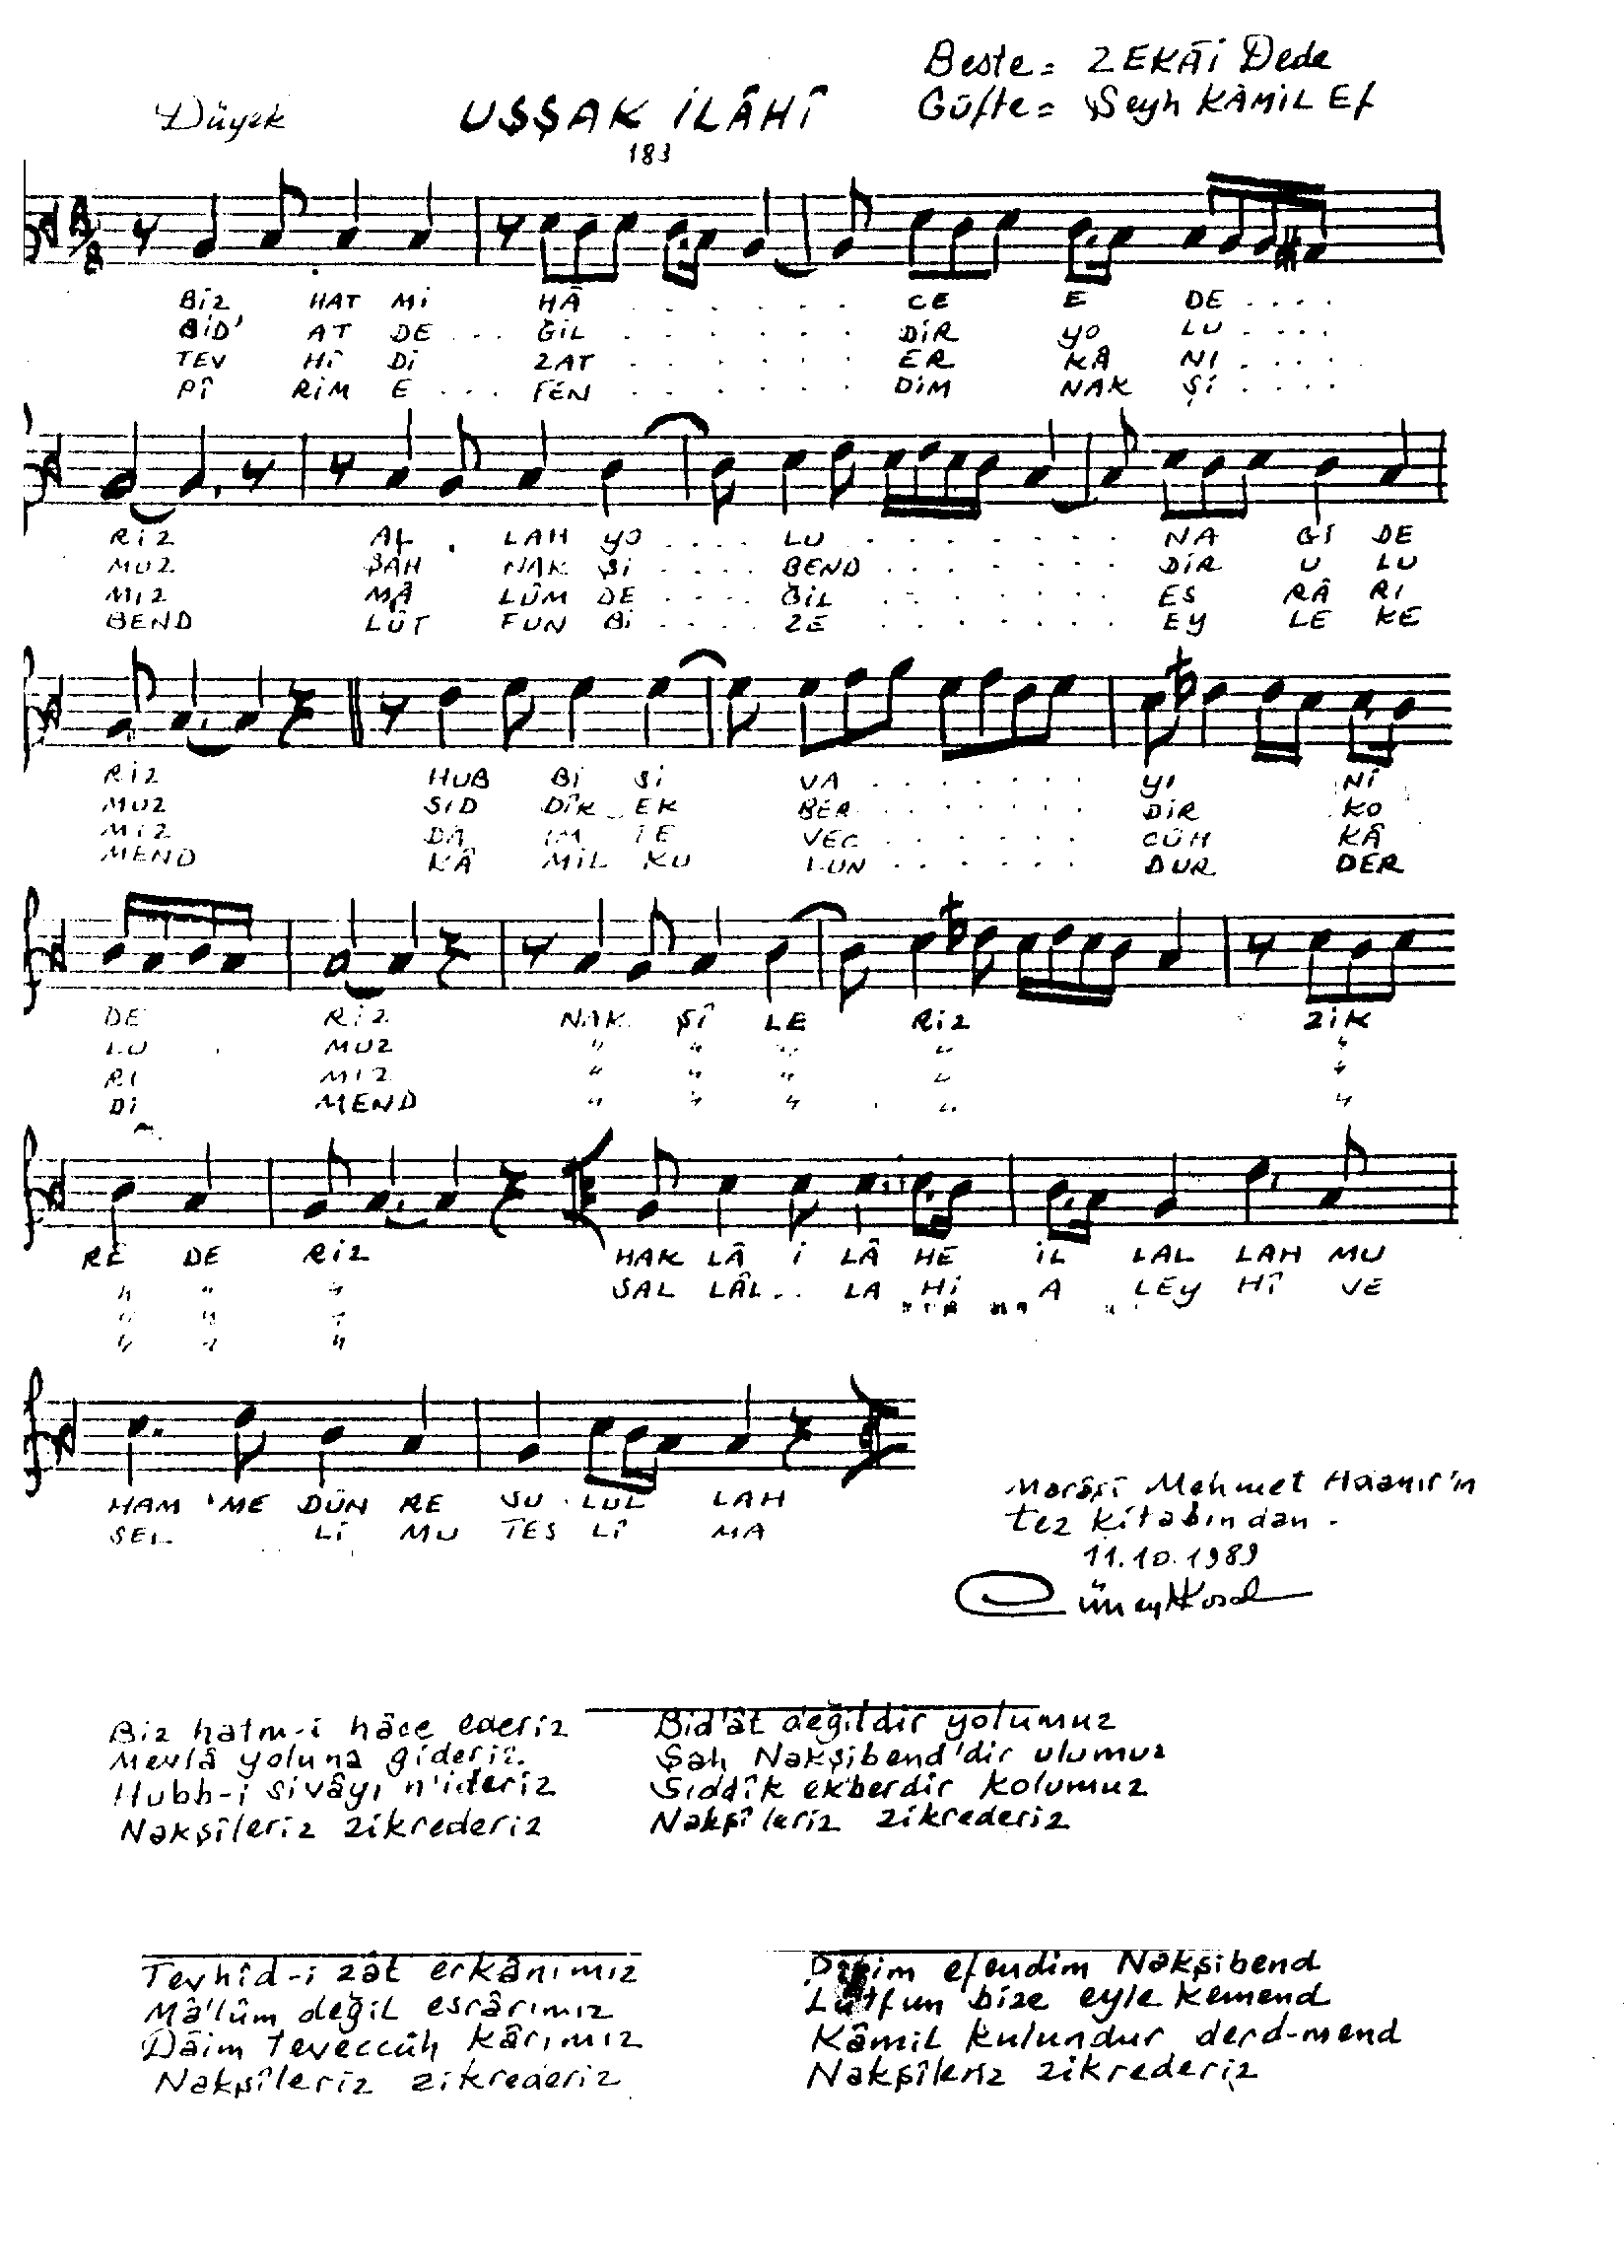 Beste = ZEKÂİ Dede
Düyek UŞŞAK İLÂHÎ Güfte = Şeyh KÂMİL Ef
183
BİZ HAT Mİ HÂ . . . . . . CE E DE . . . .
BİD' AT DE . . . ĞİL . . . . . . DİR YO LU . . . .
TEV HÎ Dİ ZAT . . . . . . ER KÂ NI . . . .
PÎ RİM E . . . FEN . . . . . . DİM NAK Şİ . . . .
RİZ AL LAH YO . . . . LU . . . . . . . . NA Gİ DE
MUZ ŞAH NAK Şİ . . . . BEND . . . . . . . DİR U LU
MIZ MÂ LÛM DE . . . . ĞİL . . . . . . . ES RÂ RI
BEND LÛT FUN Bİ . . . . ZE . . . . . . . EY LE KE
RİZ HUB Bİ Sİ VA . . . . . . . YI NÎ
MUZ SID DÎK EK BER . . . . . . DİR KO
MIZ DA İM TE VEC . . . . . . CÜH KÂ
MEND KÂ MİL KU LUN . . . . . . DUR DER
DE RİZ NAK ŞÎ LE RİZ ZİK
LU MUZ " " " " "
RI MIZ " " " " "
Dİ MEND " " " " "
RE DE RİZ HAK LÂ İ LÂ HE İL LAL LAH MU
" " " SAL LÂL . . LA Hİ A LEY HÎ VE
" " "
" " "
HAM ME DÛN RE SU LUL LAH
SEL Lİ MU TES LÎ MA
Marâşî Mehmet Haanır'ın
tez kitabından.
11.10.1989
Cüneyt Kosal
Biz hatm-i hâce ederiz
Mevlâ yoluna gideriz
Hubb-i sivâyı n'ideriz
Nakşîleriz zikrederiz
Bid'ât değildir yolumuz
Şah Nakşibend'dir ulumuz
Sıddîk ekberdir kolumuz
Nakşîleriz zikrederiz
Tevhîd-i zât erkânımız
Mâ'lûm değil esrârımız
Dâim teveccüh kârımız
Nakşîleriz zikrederiz
efendim Nakşibend
Lûtfun bize eyle kemend
Kâmil kulundur derd-mend
Nakşîleriz zikrederiz